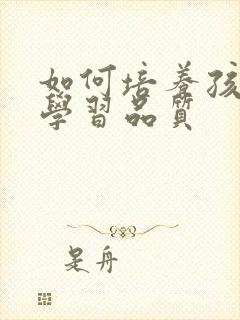 如何培养孩
學習品質
是舟